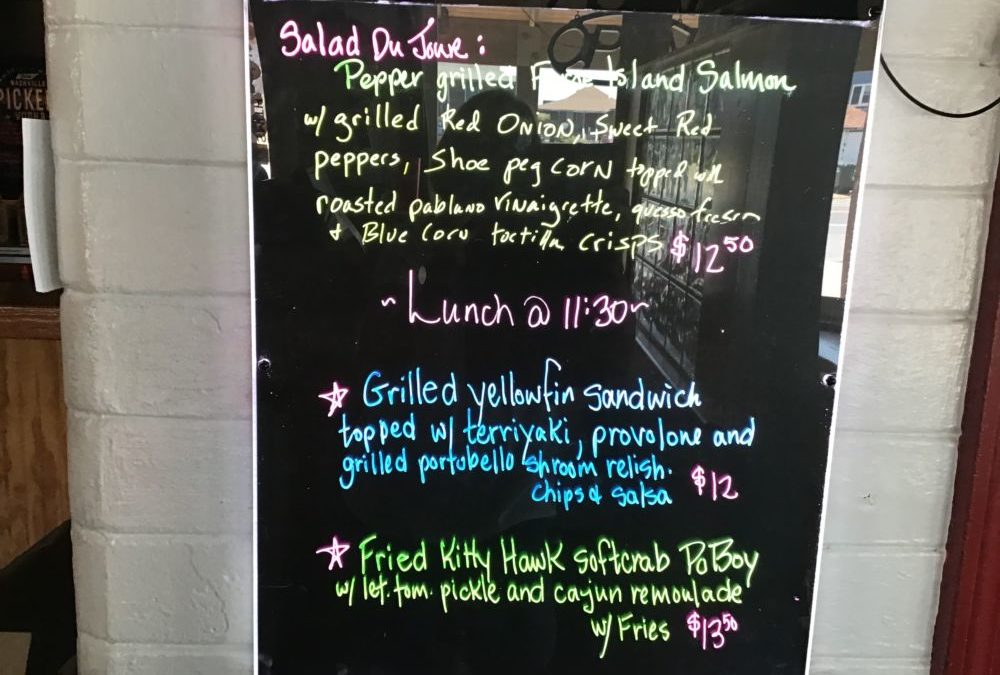 OPEN
NASHVILLE
PICKE
Salad Du Joure :
Pepper grilled Faroe Island Salmon
w/ grilled Red ONION, Sweet Red
peppers, Shoe peg CORN topped with
roasted pablano vinaigrette, quesso fresco
+ Blue Corn tortilla crisps $12.50
~Lunch @ 11:30~
☆ Grilled yellowfin sandwich
topped w/ terriyaki, provolone and
grilled portobello shroom relish.
chips & salsa $12
☆ Fried Kitty Hawk softcrab PoBoy
w/ let. tom. pickle and cajun remoulade
w/ Fries $13.50